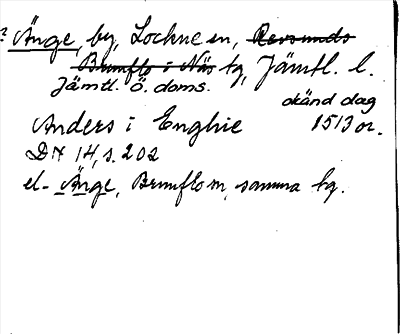 ? Änge, by, Lockne sn, Revsunds
Brunflo i Näs tg, Jämtl. l.
Jämtl. ö. doms.
okänd dag
Anders i Enghie 1513 or.
DN 14, s. 202
el. Änge, Brunflo sn, samma tg.